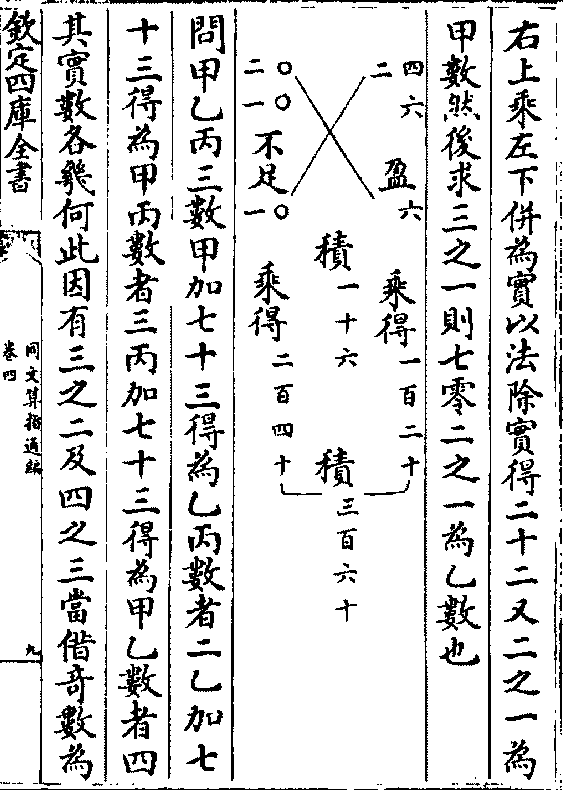 右上乘左下併為實以法除實得二十二又二之一為
甲數然後求三之一則七零二之一為乙數也
四六
二
盈六
乘得一百二十
積一十六
積三百六十
〇〇
二一
不足一〇
乘得二百四十
問甲乙丙三數甲加七十三得為乙丙數者二乙加七
十三得為甲丙數者三丙加七十三得為甲乙數者四
其實數各幾何此因有三之二及四之三當借竒數為
欽定四庫全書
同文算指通編
卷四
九